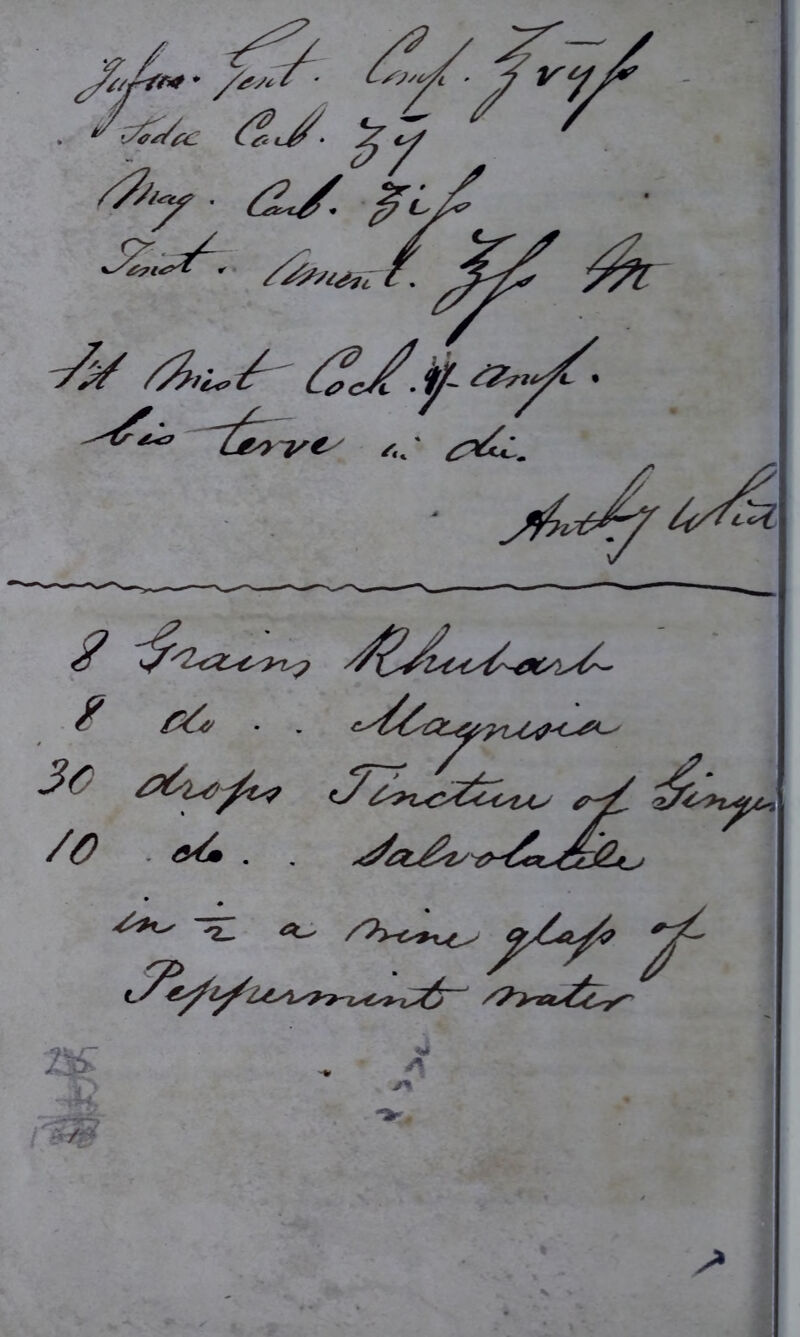 Infus. Gent. Comp. ℥vijſs
Sodæ Carb. ʒij
Mag. Carb. ʒiſs
Tinct. Ament. ℥ſs M
Ft Mist Coch. ij amp.
bis terve in die.
Anthy Whit
8 Grains Rhubarb
8 do . . Magnesia
30 drops Tincture of Ginger
10 do . . Salvolatile
in ½ a wine glaſs of
Peppermint water